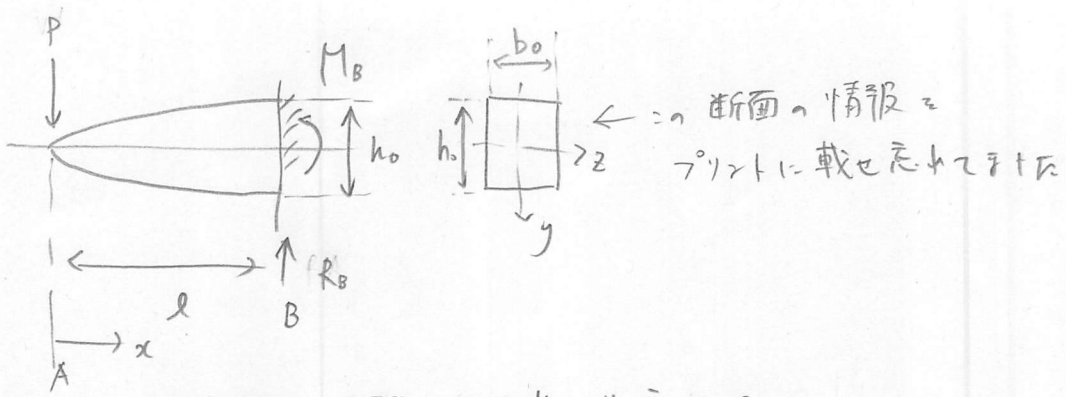 P
M_B
b_0
h_0
h_0
z
y
← この断面の情報を
プリントに載せ忘れてました
l
R_B
B
x
A